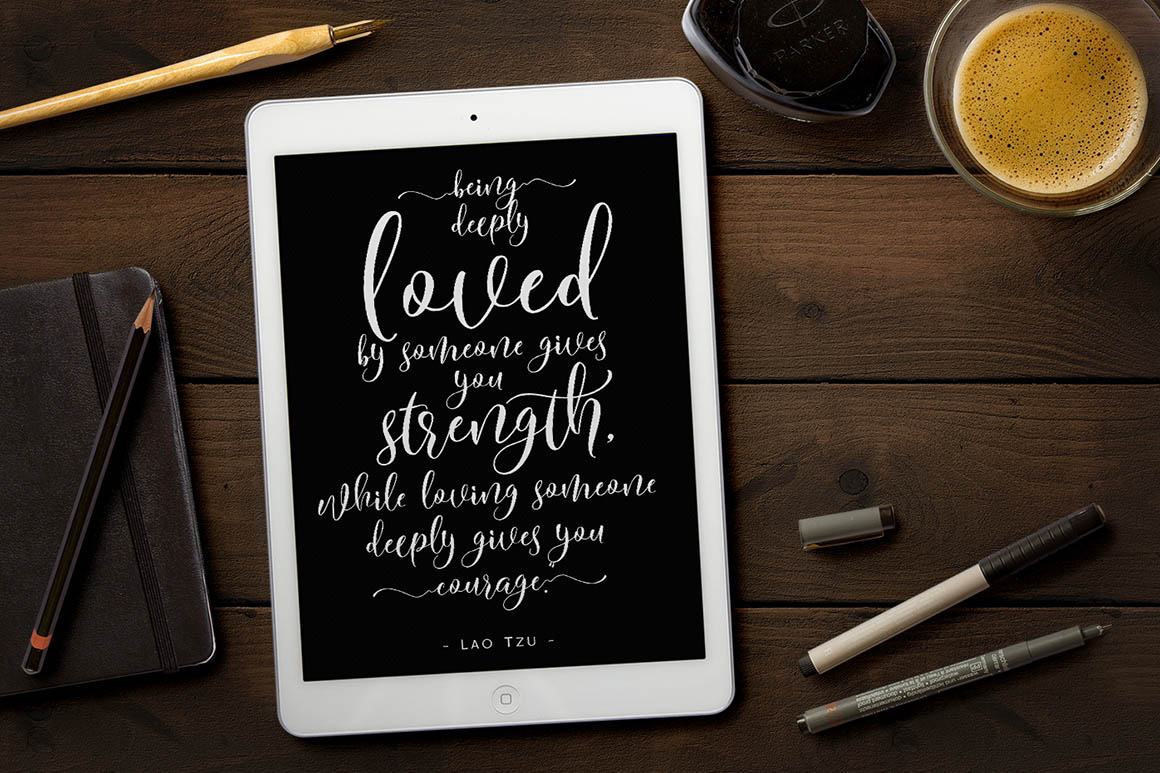 PARKER
being
deeply
loved
by someone gives
you
strength,
while loving someone
deeply gives you
courage.
- LAO TZU -